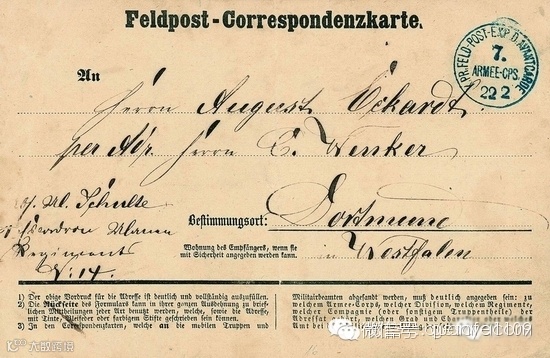 Feldpost-Correspondenzkarte.
K.PR.FELD-POST-EXP.D.AVANTGARDE
7.
ARMEE-CPS.
22 2
An
Herrn August Eckardt
per Adr. Herrn C. Wenker
Schulte
Escadron Ulanen
Regiments
Nr. 14.
Bestimmungsort: Dortmund
Wohnung des Empfängers, wenn sie
mit Sicherheit angegeben werden kann.
in Westfalen
1) Der obige Vordruck für die Adresse ist deutlich und vollständig auszufüllen.
2) Die Rückseite des Formulars kann in ihrer ganzen Ausdehnung zu brief-
lichen Mittheilungen jeder Art benutzt werden, welche, sowie die Adresse,
mit Tinte, Bleifeder oder farbigem Stifte geschrieben sein können.
3) In den Correspondenzkarten, welche an die mobilen Truppen und
Militairbeamten abgesandt werden, muß deutlich angegeben sein: zu
welchem Armee-Corps, welcher Division, welchem Regimente,
welcher Compagnie (oder sonstigem Truppentheile) der
Adressat gehört, welchen Grad und
Amt bei der
大数跨境
微信号